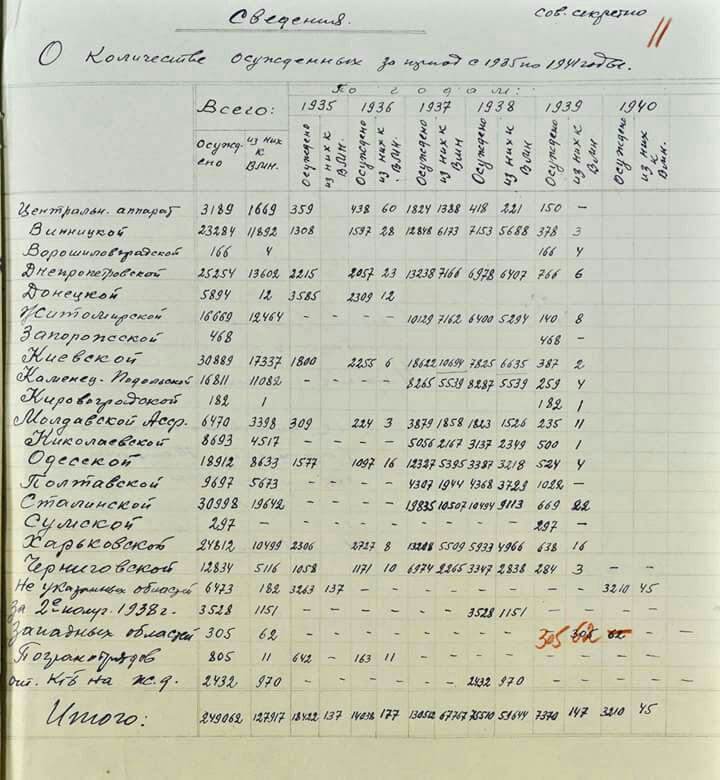 Сведения.
сов. секретно
11
О количестве осужденных за период с 1935 по 1941 годы.
По годам:
Всего: 1935 1936 1937 1938 1939 1940
Осужде-но из них к ВМН. Осуждено из них к ВМН. Осуждено из них к ВМН. Осуждено из них к ВМН Осуждено из них к ВМН Осуждено из них к ВМН Осуждено из них к ВМН.
Центральн. аппарат 3189 1669 359 438 60 1824 1388 418 221 150 -
Винницкой 23284 11892 1308 1597 28 12848 6173 7153 5688 378 3
Ворошиловградской 166 4 166 4
Днепропетровской 25254 13602 2215 2057 23 13238 7166 6978 6407 766 6
Донецкой 5894 12 3585 2309 12
Житомирской 16669 12464 - - - - 10129 7162 6400 5294 140 8
Запорожской 468 468 -
Киевской 30889 17337 1800 2255 6 18622 10694 7825 6635 387 2
Каменец-Подольской 16811 11082 - - - - 8265 5539 8287 5539 259 4
Кировоградской 182 1 182 1
Молдавской Асср. 6470 3398 309 224 3 3879 1858 1823 1526 235 11
Николаевской 8693 4517 - - - - 5056 2167 3137 2349 500 1
Одесской 18912 8633 1577 1097 16 12327 5395 3387 3218 524 4
Полтавской 9697 5673 - - - - 4307 1944 4368 3729 1022 -
Сталинской 30998 19642 - - - - 19835 10507 10494 9113 669 22
Сумской 297 - - - - - - - - - 297 -
Харьковской 24812 10499 2306 2727 8 13208 5509 5933 4966 638 16
Черниговской 12834 5116 1058 1171 10 6974 2265 3347 2838 284 3 - -
Не указанных областей 6473 182 3263 137 - - - - - - - - 3210 45
За 2ое полуг. 1938 г. 3528 1151 - - - - - - 3528 1151 - - - -
Западных областей 305 62 - - - - - - - - 305 62 - -
Погранотрядов 805 11 642 - 163 11 - - - - - - - -
от. КТБ на ж.д. 2432 970 - - - - - - 2432 970 - - - -
Итого: 249062 127917 18422 137 14038 177 130502 67767 75510 59644 7370 147 3210 45